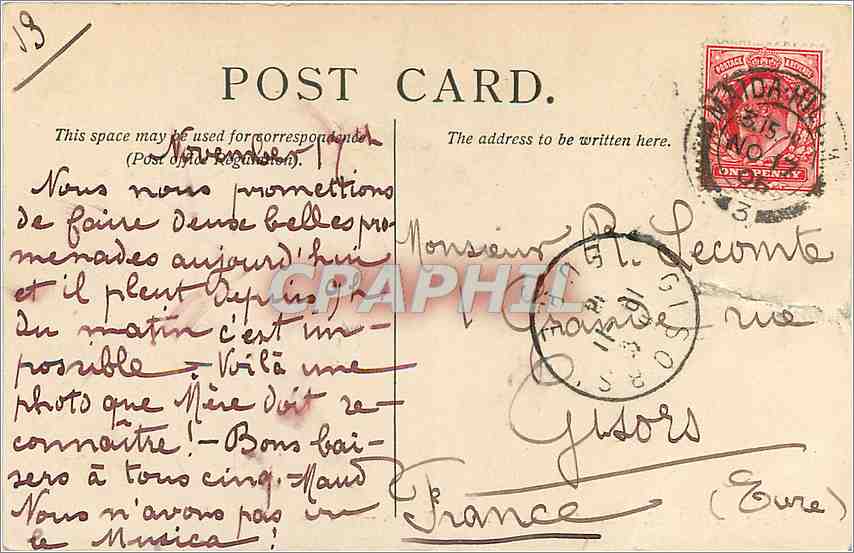 19
POST CARD.
This space may be used for correspondence
(Post office Regulation).
The address to be written here.
November 17th
Nous nous promettions
de faire deux belles pro-
menades aujourd'hui
et il pleut depuis 9h
du matin c'est im-
possible. - Voilà une
photo que Mère doit re-
connaître! - Bons bai-
sers à tous cinq. - Maud
Nous n'avons pas vu
le Musica!
Monsieur R. Lecomte
1 Grande rue
Gisors
(Eure)
France
POSTAGE REVENUE
ONE PENNY
MAIDA-HILL W
3.15
NO 17
06
3
GISORS
EURE
CPAPHIL